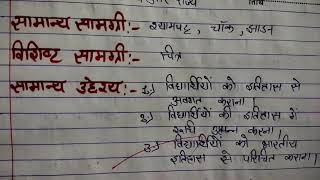 सामान्य सामग्री:- श्यामपट्ट, चॉक, झाडन
विशिष्ट सामग्री:- चित्र
सामान्य उद्देश्य:- 1.) विद्यार्थियों को इतिहास से
अवगत कराना
2.) विद्यार्थियों की इतिहास में
रूचि उत्पन्न करना
3.) विद्यार्थियों को भारतीय
इतिहास से परिचित कराना।